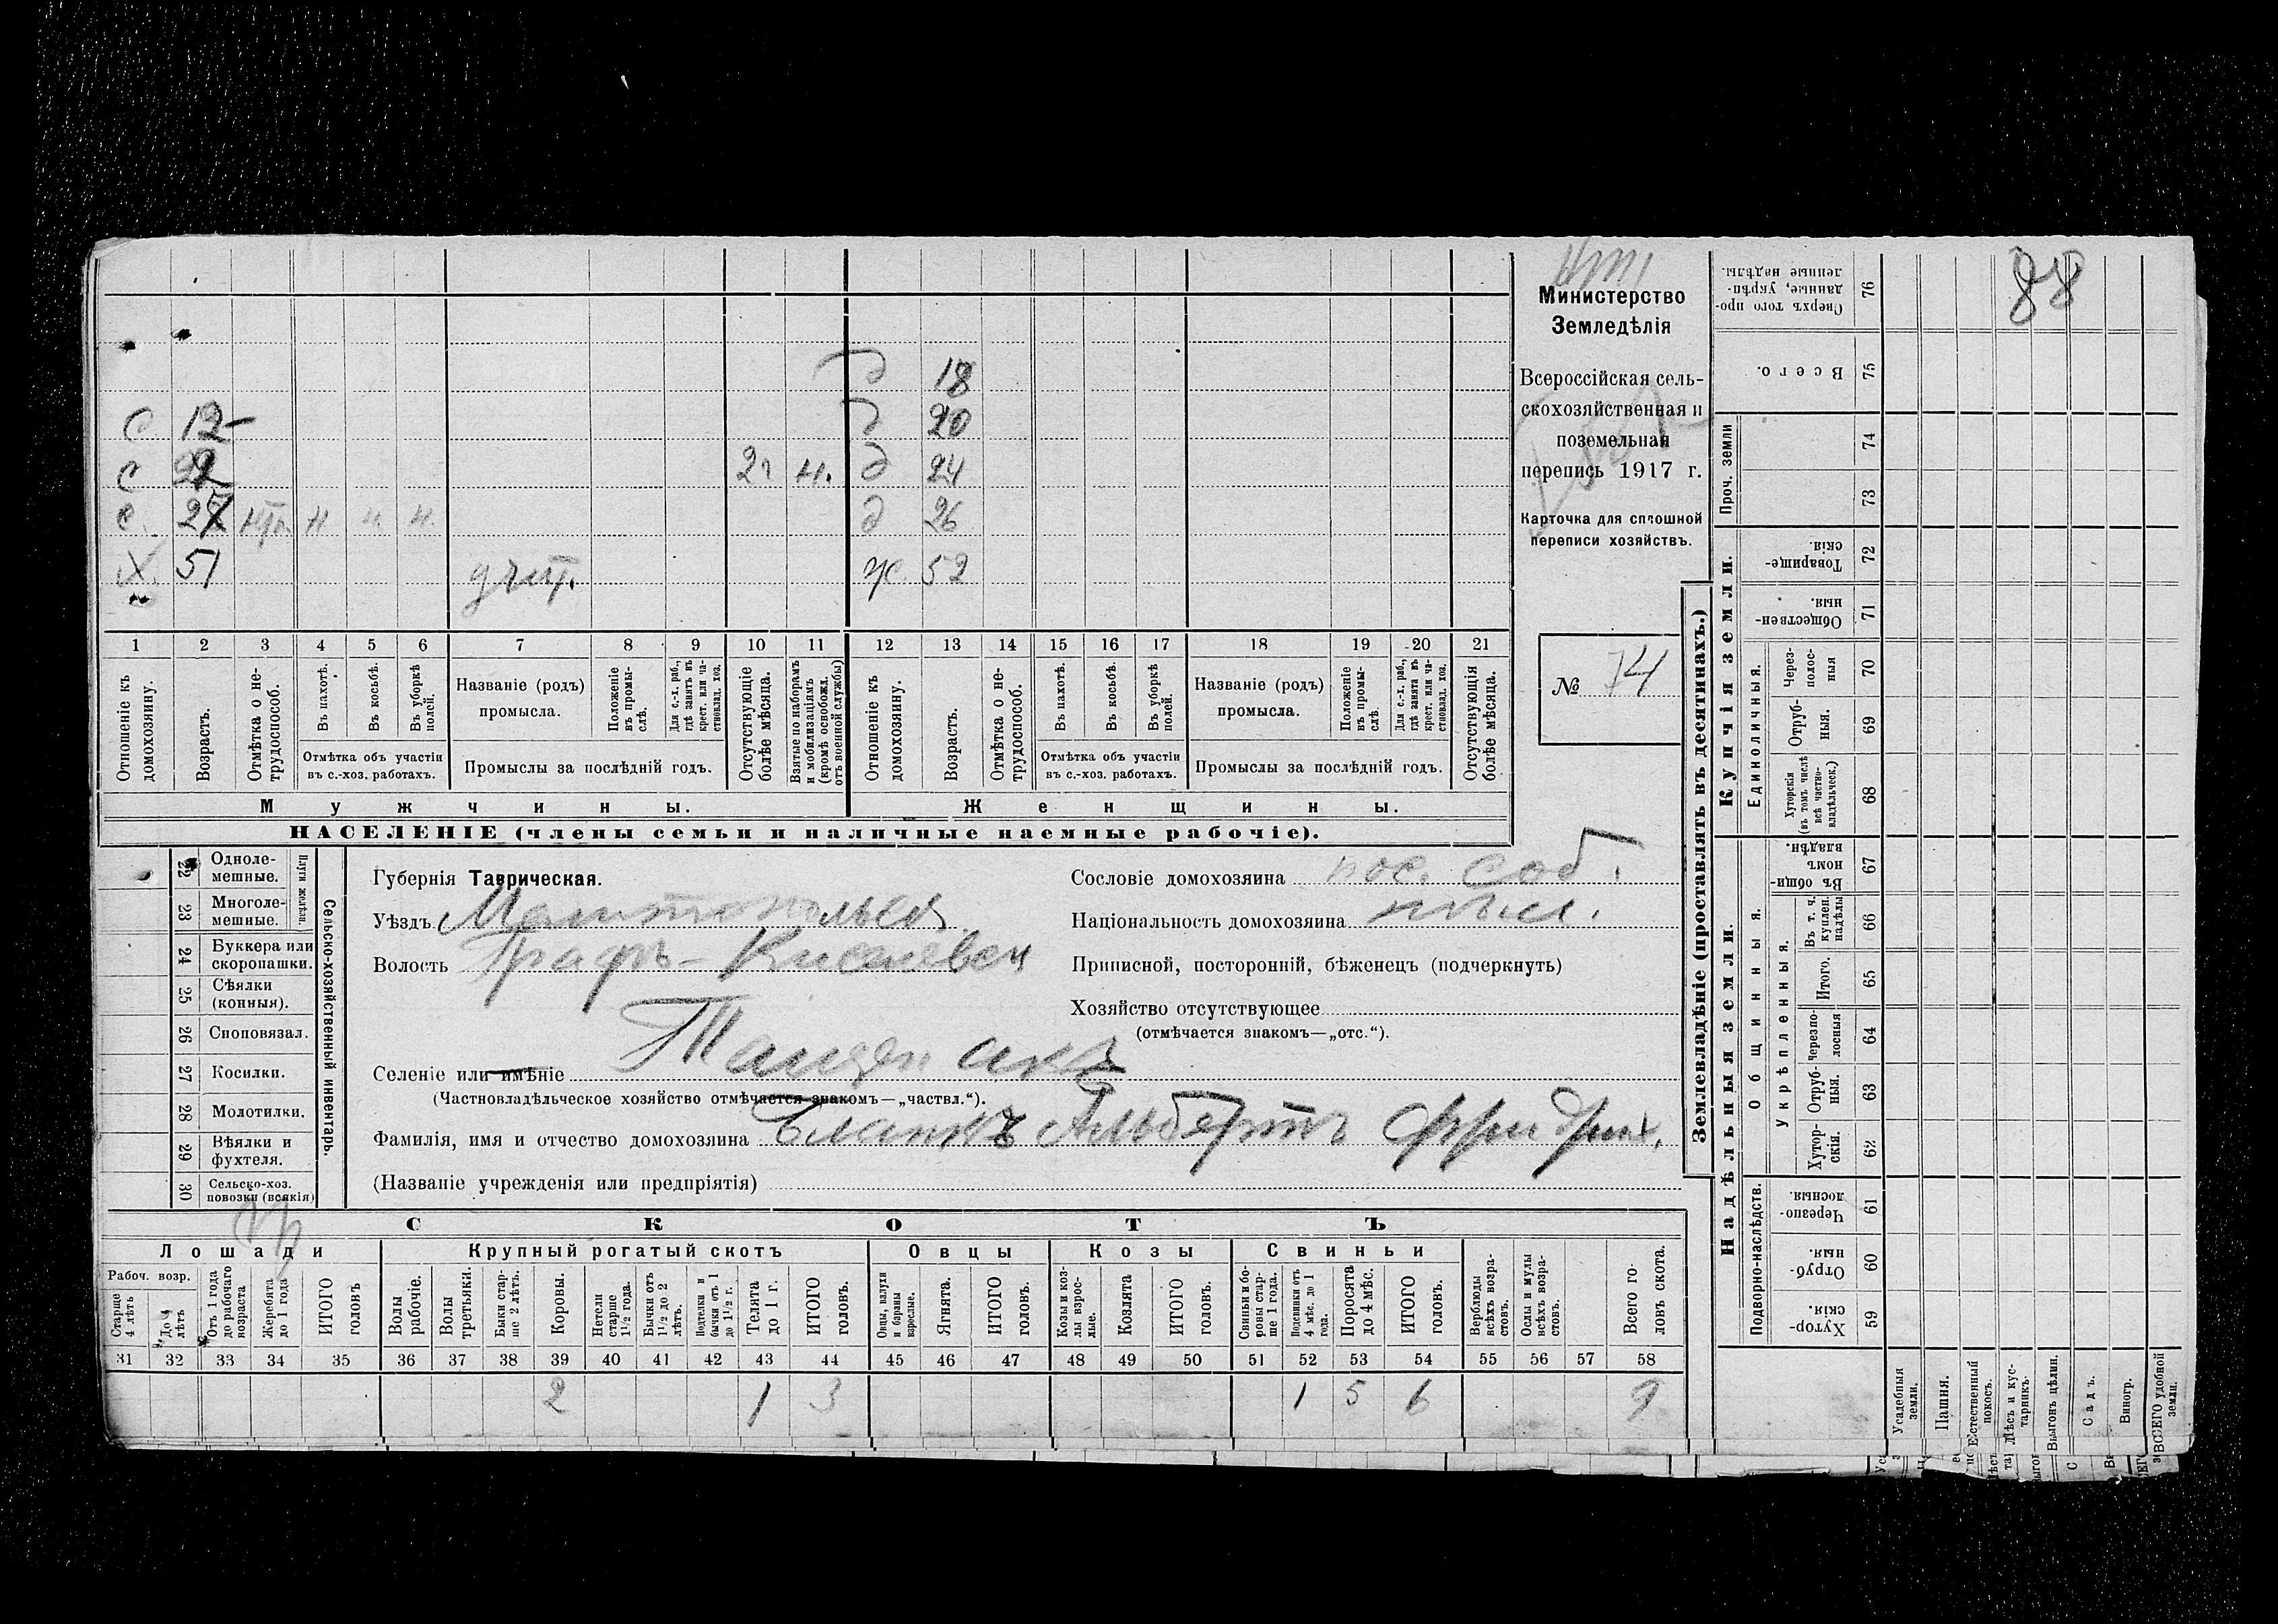 88
Министерство
Земледѣлія
Всероссійская сель-
скохозяйственная и
поземельная
перепись 1917 г.
Карточка для сплошной
переписи хозяйствъ.
№ 74
д 18
с 12 д 20
с 22 2 г. н. д 24
с. 27 н. н. н. д 26
Х. 51 учит. ж. 52
1 2 3 4 5 6 7 8 9 10 11 12 13 14 15 16 17 18 19 20 21
Отношеніе къ домохозяину.
Возрастъ.
Отмѣтка о не-трудоспособ.
Въ пахотѣ.
Въ косьбѣ.
Въ уборкѣ полей.
Отмѣтка объ участіи
въ с.-хоз. работахъ.
Названіе (родъ)
промысла.
Положеніе въ промы-слѣ.
Для с.-х. раб., гдѣ занятъ въ крест. или ча-стновлад. хоз.
Промыслы за послѣдній годъ.
Отсутствующіе болѣе мѣсяца.
Взятые по наборамъ и мобилизаціямъ (кромѣ освобожд. отъ военной службы)
Отношеніе къ домохозяину.
Возрастъ.
Отмѣтка о не-трудоспособ.
Въ пахотѣ.
Въ косьбѣ.
Въ уборкѣ полей.
Отмѣтка объ участіи
въ с.-хоз. работахъ.
Названіе (родъ)
промысла.
Положеніе въ промы-слѣ.
Для с.-х. раб., гдѣ занята въ крест. или ча-стновлад. хоз.
Промыслы за послѣдній годъ.
Отсутствующія болѣе мѣсяца.
Мужчины. Женщины.
НАСЕЛЕНІЕ (члены семьи и наличные наемные рабочіе).
Сельско-хозяйственный инвентарь.
Плуги желѣзн.
22 Одноле-мешные.
23 Многоле-мешные.
24 Буккера или скоропашки.
25 Сѣялки (конныя).
26 Сноповязал.
27 Косилки.
28 Молотилки.
29 Вѣялки и фухтеля.
30 Сельско-хоз. повозки (всякія)
Губернія Таврическая.
Уѣздъ Мелитопольск
Волость Графъ-
Селеніе или имѣніе
(Частновладѣльческое хозяйство отмѣчается знакомъ—„частвл.“).
Фамилія, имя и отчество домохозяина Бланкъ Альбертъ Фридрих.
(Названіе учрежденія или предпріятія)
Сословіе домохозяина пос. соб.
Національность домохозяина нѣм.
Приписной, посторонній, бѣженецъ (подчеркнуть)
Хозяйство отсутствующее
(отмѣчается знакомъ—„отс.“).
СКОТЪ
Лошади Крупный рогатый скотъ Овцы Козы Свиньи
Рабоч. возр.
Старше 4 лѣтъ
До 4 лѣтъ
Отъ 1 года до рабочаго возраста
Жеребята до 1 года
ИТОГО головъ
Волы рабочіе.
Волы третьяки.
Быки стар-ше 2 лѣтъ.
Коровы.
Нетели старше 1½ года.
Бычки отъ 1½ до 2 лѣтъ.
Подтелки и бычки отъ 1 до 1½ г.
Телята до 1 г.
ИТОГО головъ.
Овцы, валухи и бараны взрослые.
Ягнята.
ИТОГО головъ.
Козы и коз-лы взрос-лые.
Козлята
ИТОГО головъ.
Свиньи и бо-ровы стар-ше 1 года.
Подсвинки отъ 4 мѣс. до 1 года.
Поросята до 4 мѣс.
ИТОГО головъ.
Верблюды всѣхъ возра-стовъ.
Ослы и мулы всѣхъ возра-стовъ.
Всего го-ловъ скота.
31 32 33 34 35 36 37 38 39 40 41 42 43 44 45 46 47 48 49 50 51 52 53 54 55 56 57 58
2 1 3 1 5 6 9
Землевладѣніе (проставлять въ десятинахъ.)
Купчія земли.
Надѣльныя земли.
Сверхъ того про-данные, укрѣп-ленные надѣлы. 76
Всего. 75
Проч. земли 74 73
Товарище-скія. 72
Обществен-ныя. 71
Единоличныя.
Черезполос-ныя 70
Отруб-ныя. 69
Хуторскія (въ томъ числѣ всѣ частно-владѣльческ.) 68
Общинныя.
Въ общин-номъ владѣн. 67
Укрѣпленныя.
Въ т. ч. куплен. надѣлы 66
Итого. 65
Черезпо-лосныя 64
Отруб-ныя. 63
Хутор-скія. 62
Подворно-наслѣдств.
Черезпо-лосныя. 61
Отруб-ныя. 60
Хутор-скія. 59
Усадебныя земли.
Пашня.
Естественный покосъ.
Лѣсъ и кус-тарникъ.
Выгонъ цѣлин.
Садъ.
Виногр.
ВСЕГО удобной земли.